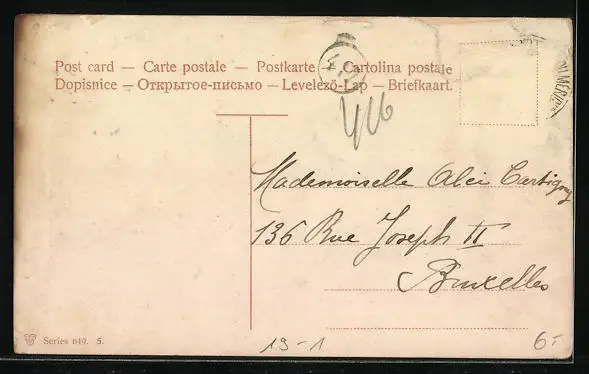 Post card — Carte postale — Postkarte — Cartolina postale
Dopisnice — Открытое-письмо — Levelező-Lap — Briefkaart.
Mademoiselle Alei Cartigny
136 Rue Joseph II
Bruxelles
Series 640. 5.
19-1
6-